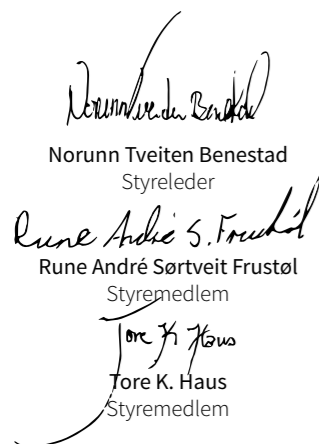 Norunn Tveiten Benestad
Norunn Tveiten Benestad
Styreleder
Rune André S. Frustøl
Rune André Sørtveit Frustøl
Styremedlem
Tore K Haus
Tore K. Haus
Styremedlem